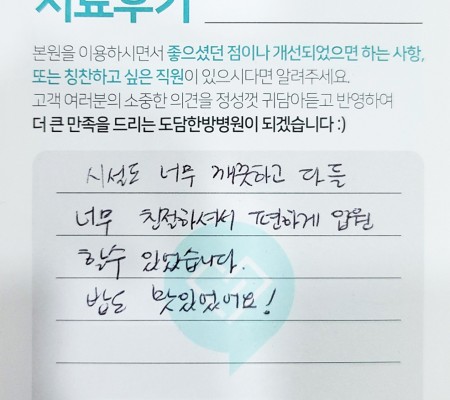 치료후기
본원을 이용하시면서 좋으셨던 점이나 개선되었으면 하는 사항,
또는 칭찬하고 싶은 직원이 있으시다면 알려주세요.
고객 여러분의 소중한 의견을 정성껏 귀담아듣고 반영하여
더 큰 만족을 드리는 도담한방병원이 되겠습니다 :)
시설도 너무 깨끗하고 다들
너무 친절하셔서 편하게 입원
할수 있었습니다.
밥도 맛있었어요!